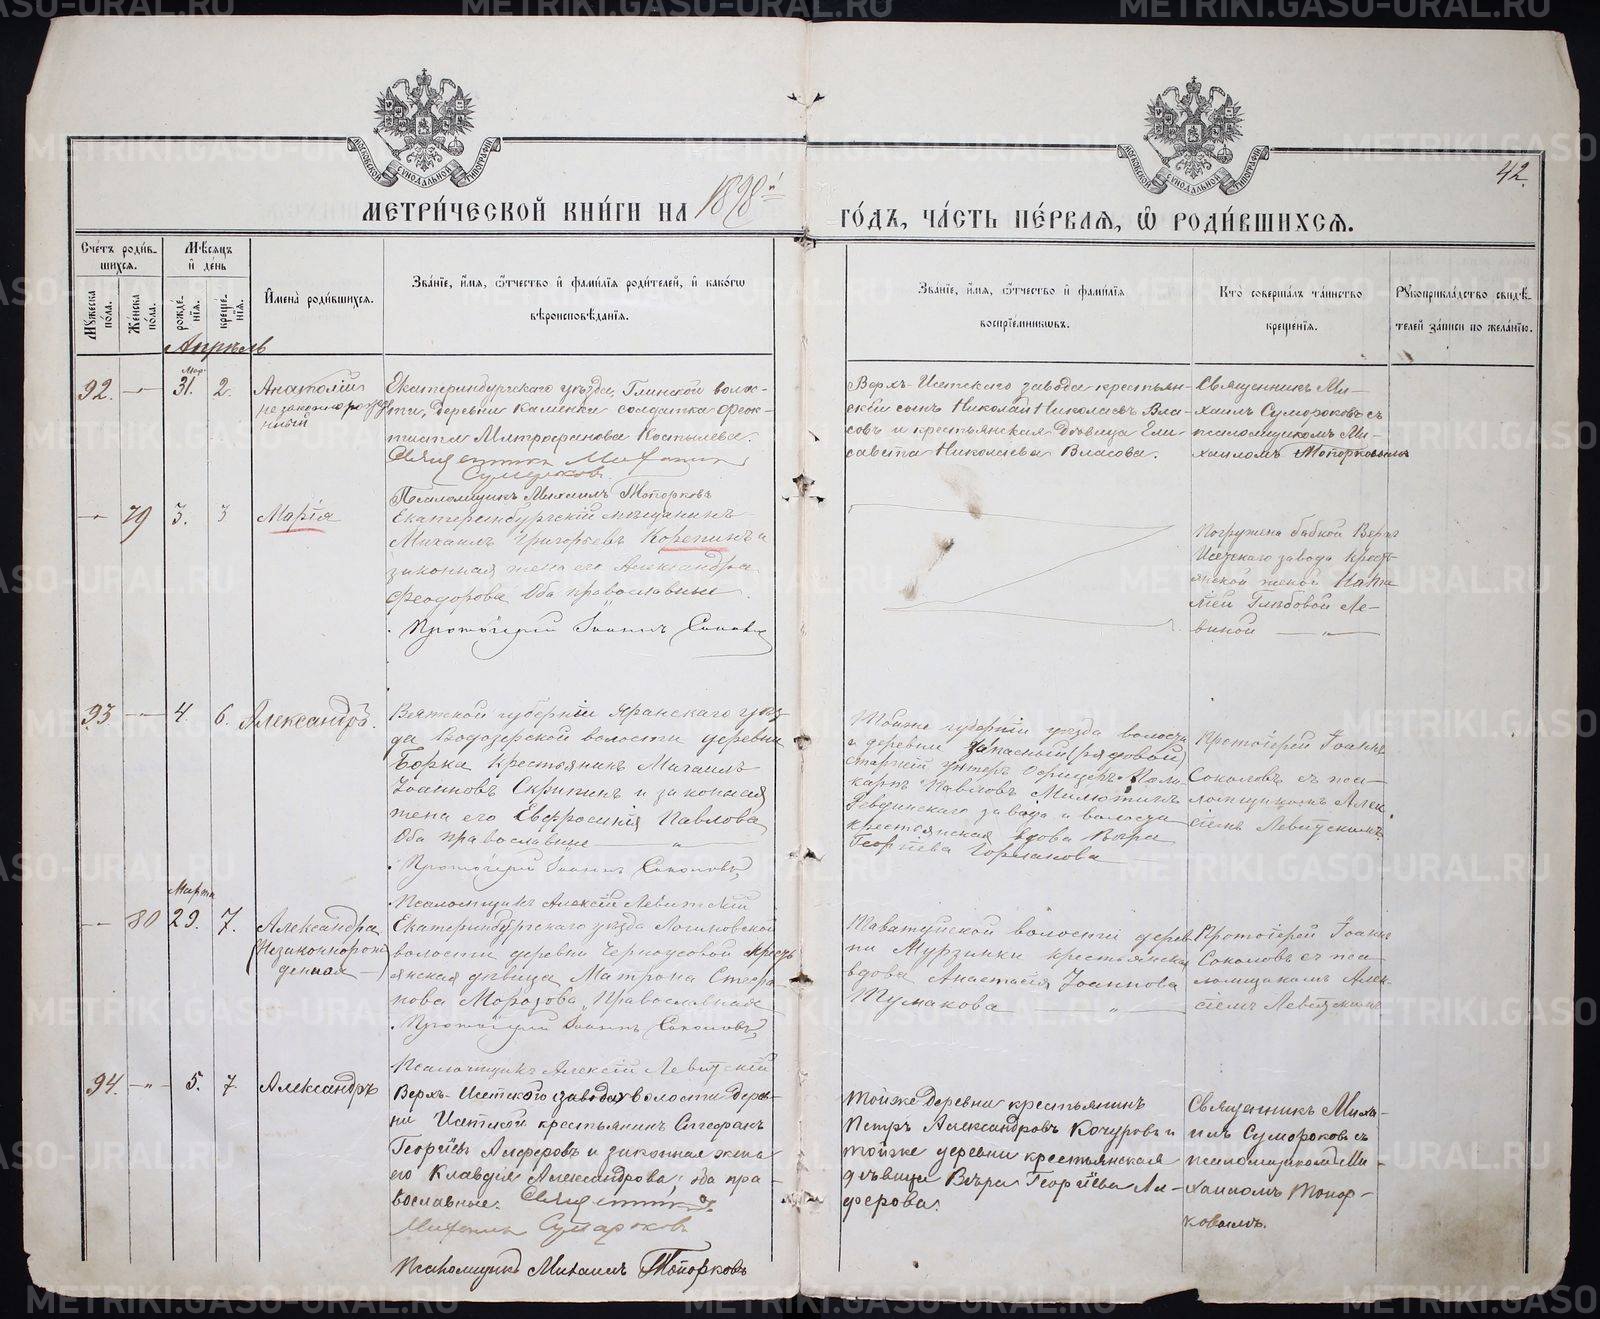 42.
МЕТРИ́ЧЕСКОЙ КНИ́ГИ НА 1898й ГО́ДЪ, ЧА́СТЬ ПЕ́РВАЯ, Ѿ РОДИ́ВШИХСЯ.
Сче́тъ роди́в-
шихся.
Мѣ́сяцъ
и҆ де́нь
Му́жеска
по́ла.
Же́нска
по́ла.
рожде́-
нїя.
креще́-
нїя.
И҆мена̀ роди́вшихся.
Зва́нїе, и҆́мя, ѻ҆́тчество и҆ фами́лїя роди́телей, и҆ како́гѡ
вѣроисповѣ́данїя.
Зва́нїе, и҆́мя, ѻ҆́тчество и҆ фами́лїя
воспрїе́мникѡвъ.
Кто̀ соверша́лъ та́инство
креще́нїя.
Рꙋкоприкла́дство свидѣ́-
телей за́писи по жела́нїю.
Апрѣль
Мар.
92. 31. 2. Анатолій
незаконорожден
ный
Екатеринбургскаго уѣзда, Глинской волос-
ти, деревни Каменки солдатка Феок-
тиста Митрофанова Костылева.
Священникъ Михаилъ
Сумороковъ
Псаломщикъ Михаилъ Топорковъ
Верхъ-Исетскаго завода крестьян-
скій сынъ Николай Николаевъ Вла-
совъ и крестьянская дѣвица Ели-
савета Николаева Власова.
Священникъ Ми-
хаилъ Сумороковъ съ
псаломщикомъ Ми-
хаиломъ Топорковымъ
79 3. 3 Марія
Екатеринбургскій мѣщанинъ
Михаилъ Григорьевъ Корепинъ и
законная жена его Александра
Феодорова Оба православные
Протоіерей Іоаннъ Соколовъ
Погружена бабкой Верхъ
Исетскаго завода крест-
янской женой
Глѣбовой Ле-
виной
93 4. 6. Александръ.
Вятской губерніи Яранскаго уѣз-
да Водозерской волости деревни
Борка крестьянинъ Михаилъ
Іоанновъ Скрипинъ и законная
жена его Евфросинія Павлова
Оба православные
Протоіерей Іоаннъ Соколовъ
Псаломщикъ Алексій Левитскій
Тойже губерніи уѣзда волости
и деревни запасный (рядовой)
старшій унтеръ офицеръ Поли
карпъ Павловъ Милютинъ
Ревдинскаго завода и волости
крестьянская вдова Вѣра
Георгіева Горманова
Протоіерей Іоаннъ
Соколовъ съ пса-
ломщикомъ Алек-
сіемъ Левитскимъ
Марта
80 29. 7. Александра
(Незаконнорож
денная)
Екатеринбургскаго уѣзда Логиновской
волости деревни Черноусовой крест
янская дѣвица Матрона Стефа-
нова Морозова, Православная
Протоіерей Іоаннъ Соколовъ
Псаломщикъ Алексій Левитскій
Таватуйской волости дерев
ни Мурзинки крестьянская
вдова Анастасія Іоаннова
Тумакова
Протоіерей Іоаннъ
Соколовъ съ пса-
ломщикомъ Алек-
сіемъ Левитскимъ
94. 5. 7. Александръ
Верхъ-Исетского завода волости дерев-
ни Исетской крестьянинъ Стефанъ
Георгіевъ Алферовъ и законная жена
его Клавдія Александрова: оба пра-
вославные. Священникъ
Михаилъ Сумароковъ
Псаломщикъ Михаилъ Топорковъ
Тойже деревни крестьянинъ
Петръ Александровъ Кочуровъ и
тойже деревни крестьянская
дѣвица Вѣра Георгіева Ал-
ферова.
Священникъ Миха-
илъ Сумороковъ съ
псаломщикомъ Ми-
хаиломъ Топор-
ковымъ.
METRIKI.GASO-URAL.RU